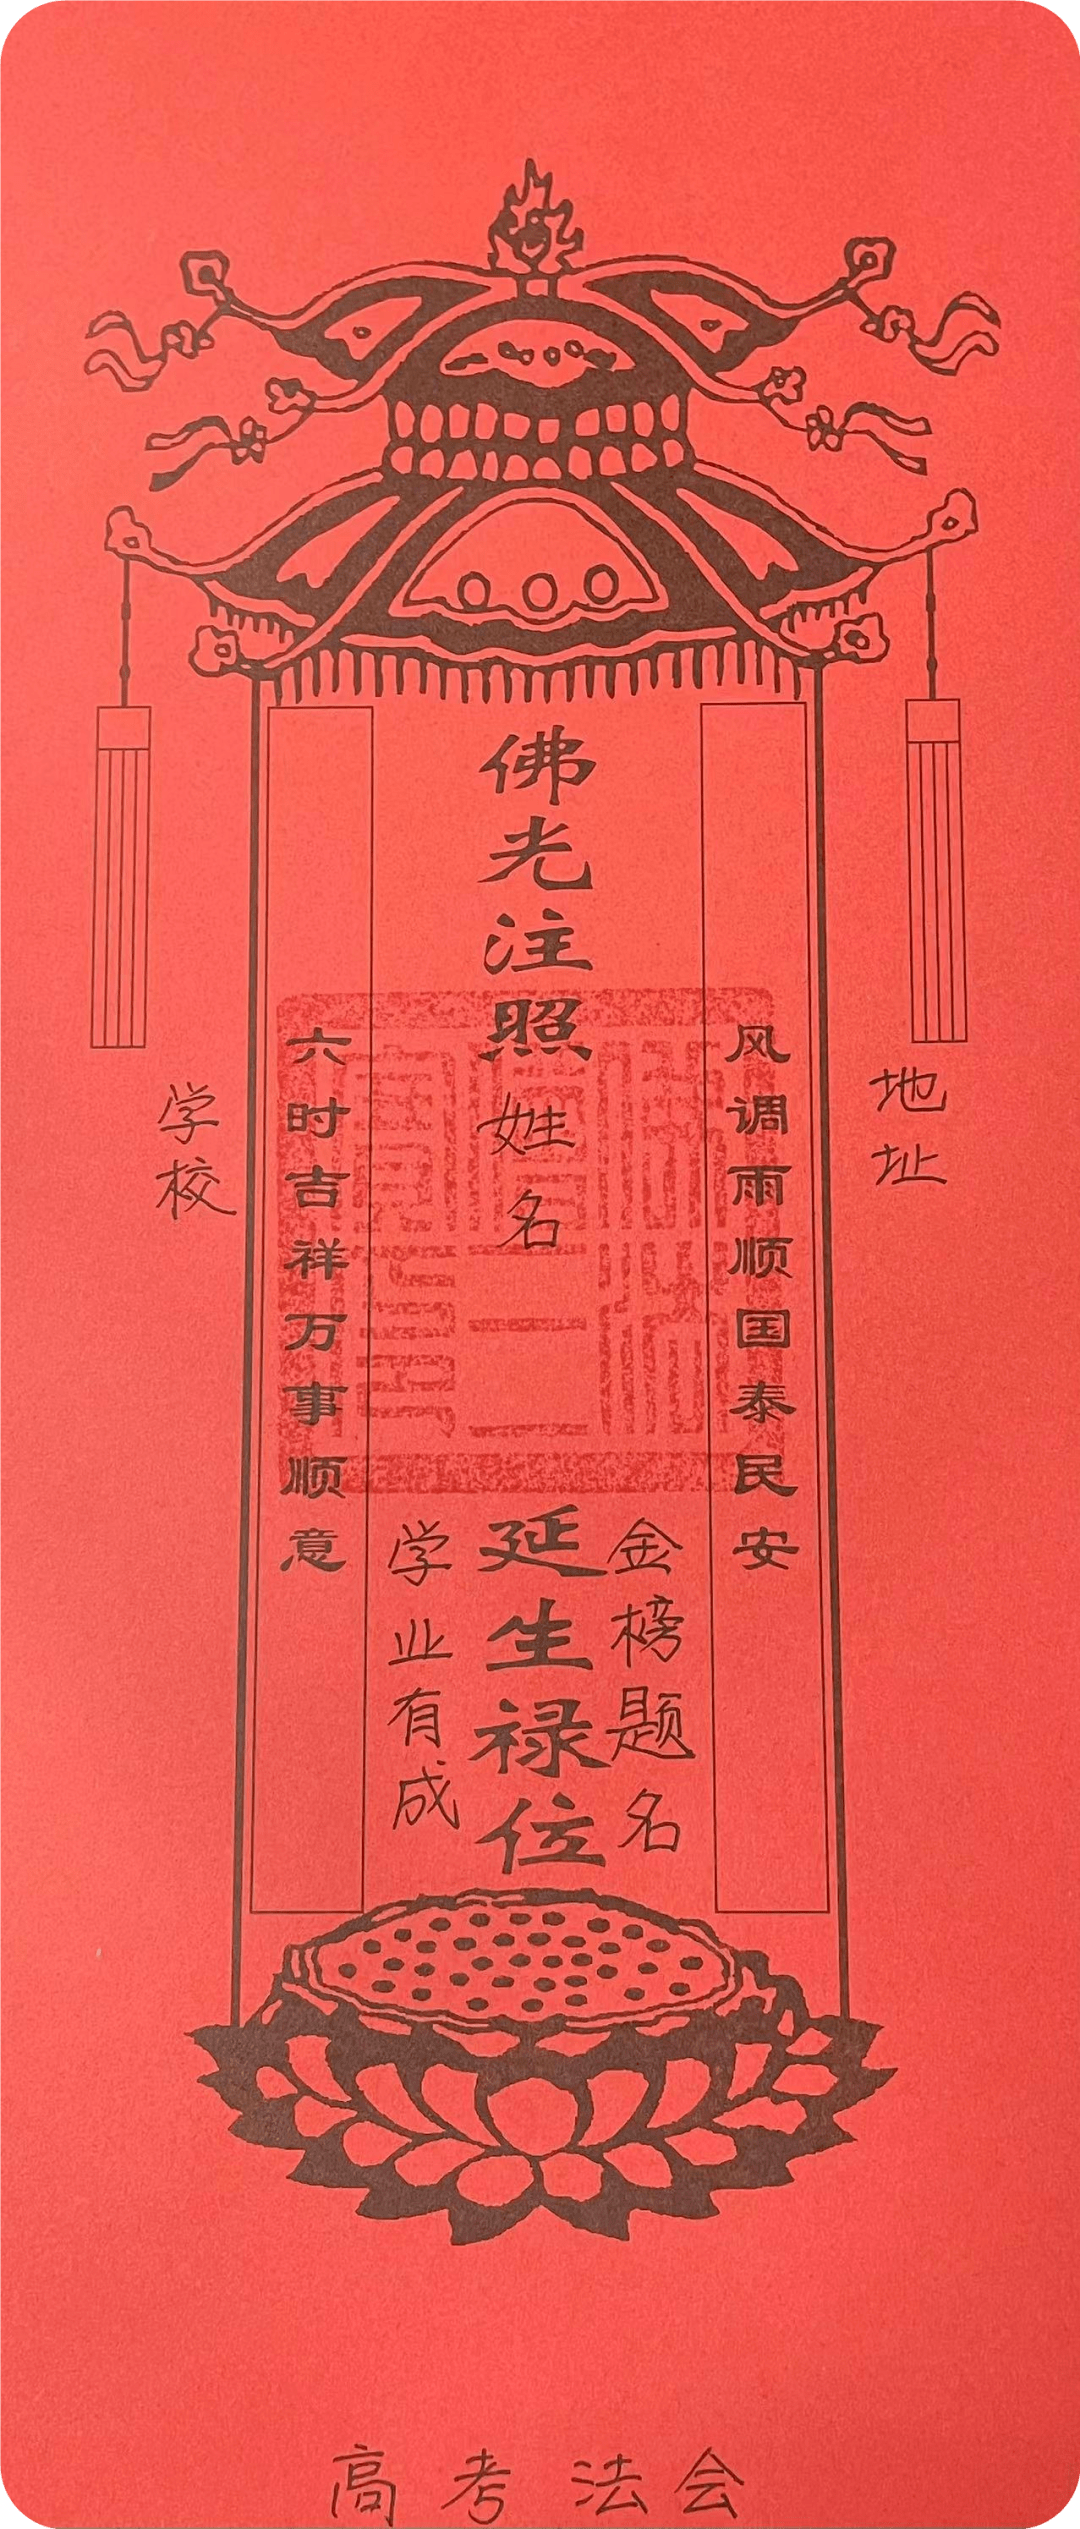 地址
风调雨顺国泰民安
金榜题名
佛光注照
姓名
延生禄位
学业有成
六时吉祥万事顺意
学校
高考法会